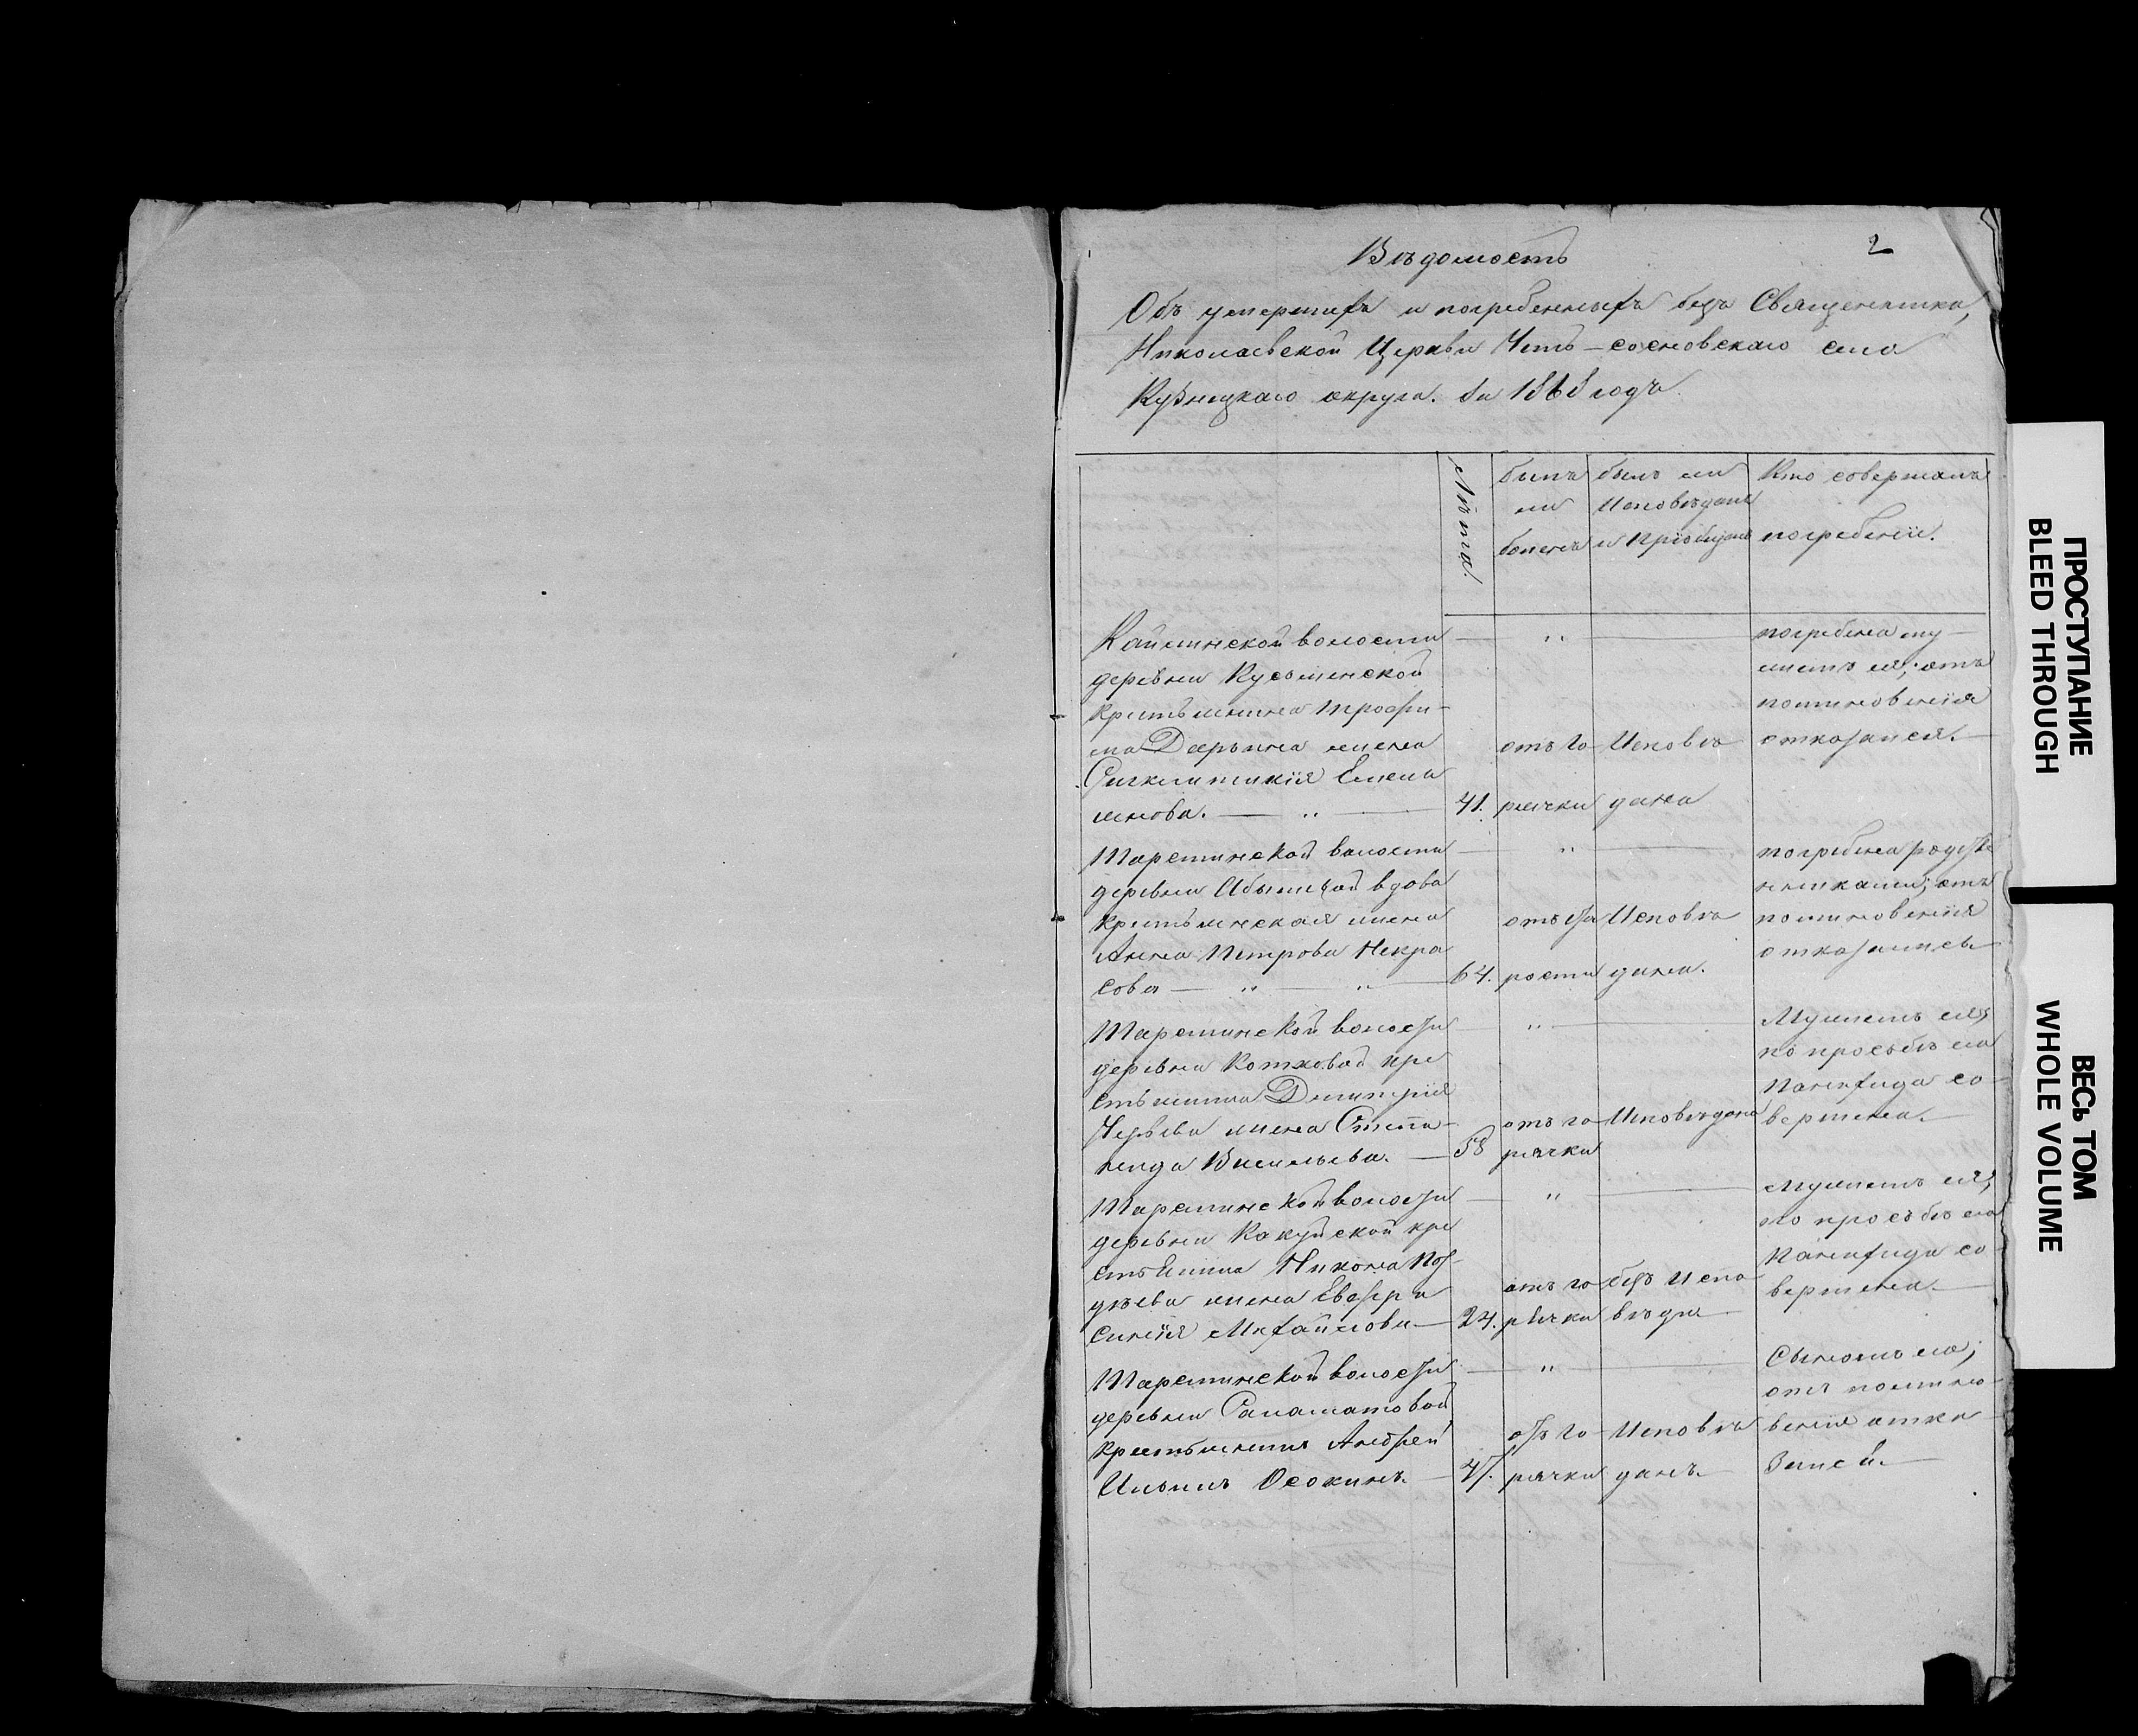 Вѣдомость
2
Объ умершихъ и погребенныхъ безъ Священника,
Николаевской Церкви Усть-сосновскаго села
Кузнецкаго округа. за 1868 годъ
Лѣта.
былъ
ли
боленъ
былъ ли
Исповѣданъ
и Пріобщенъ
Кто совершалъ
погребеніе.
Кайлинской волости
деревни Кусьменской
крестьянина Трофи-
ма Дарьина жена
Сигклитикія Емелья
нова.
41.
отъ го
рячки
Исповѣ
дана
погребена му-
жемъ ея; отъ
поминовенія
отказался.
Тарсминской волости
деревни Абышевой вдова
крестьянская жена
Анна Петрова Некра
сова
64.
отъ ста
рости
Исповѣ
дана.
погребена родстве
нниками; отъ
поминовенія
отказались
Тарсминской волости
деревни Котковой кре
стьянина Димитрія
жена Степа-
нида Васильева.
58
отъ го
рячки
Исповѣдана
Мужемъ ея,
по просьбѣ его
Панихида со-
вершена.
Тарсминской волости
деревни Какуйской кре
стьянина Никона Поз-
дѣева жена Евфро
синія Михайлова
24.
отъ го
рячки
безъ Испо
вѣди
Мужемъ ея,
по просьбѣ его
Панихида со-
вершена.
Тарсминской волости
деревни Саламатовой
крестьянинъ Андрей
Ильинъ Осокинъ.
47.
отъ го
рячки
Исповѣ
данъ.
Сыномъ его;
отъ помино-
венія отка-
зался.
ПРОСТУПАНИЕ
BLEED THROUGH
ВЕСЬ ТОМ
WHOLE VOLUME